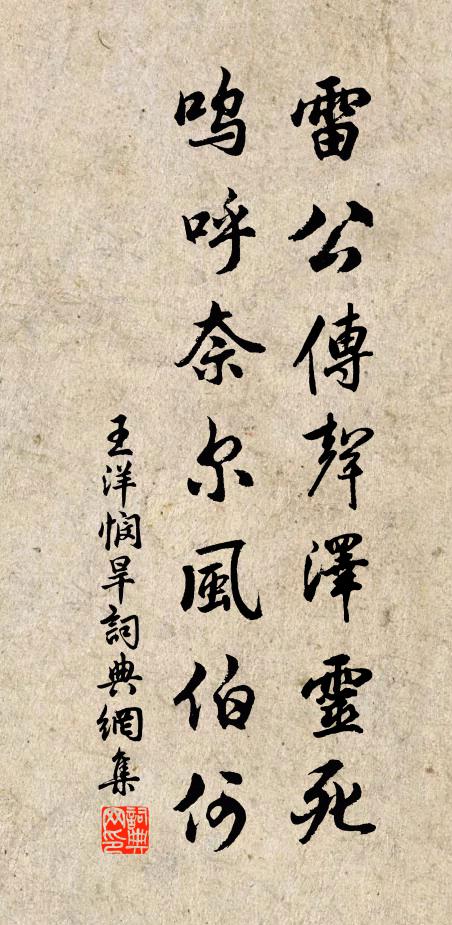 雷公傳聲澤靈死
嗚呼奈尔風伯何
王洋憫旱詞典網集
詞典
网印